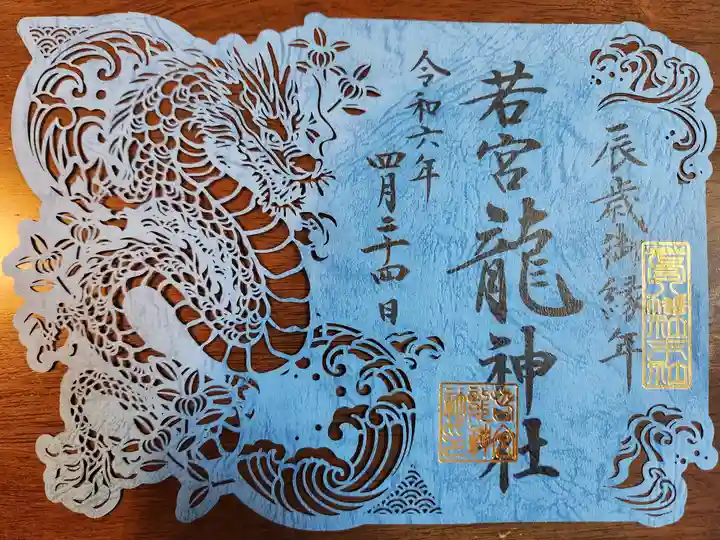 辰歳御縁年
若宮龍神社
令和六年
四月二十四日